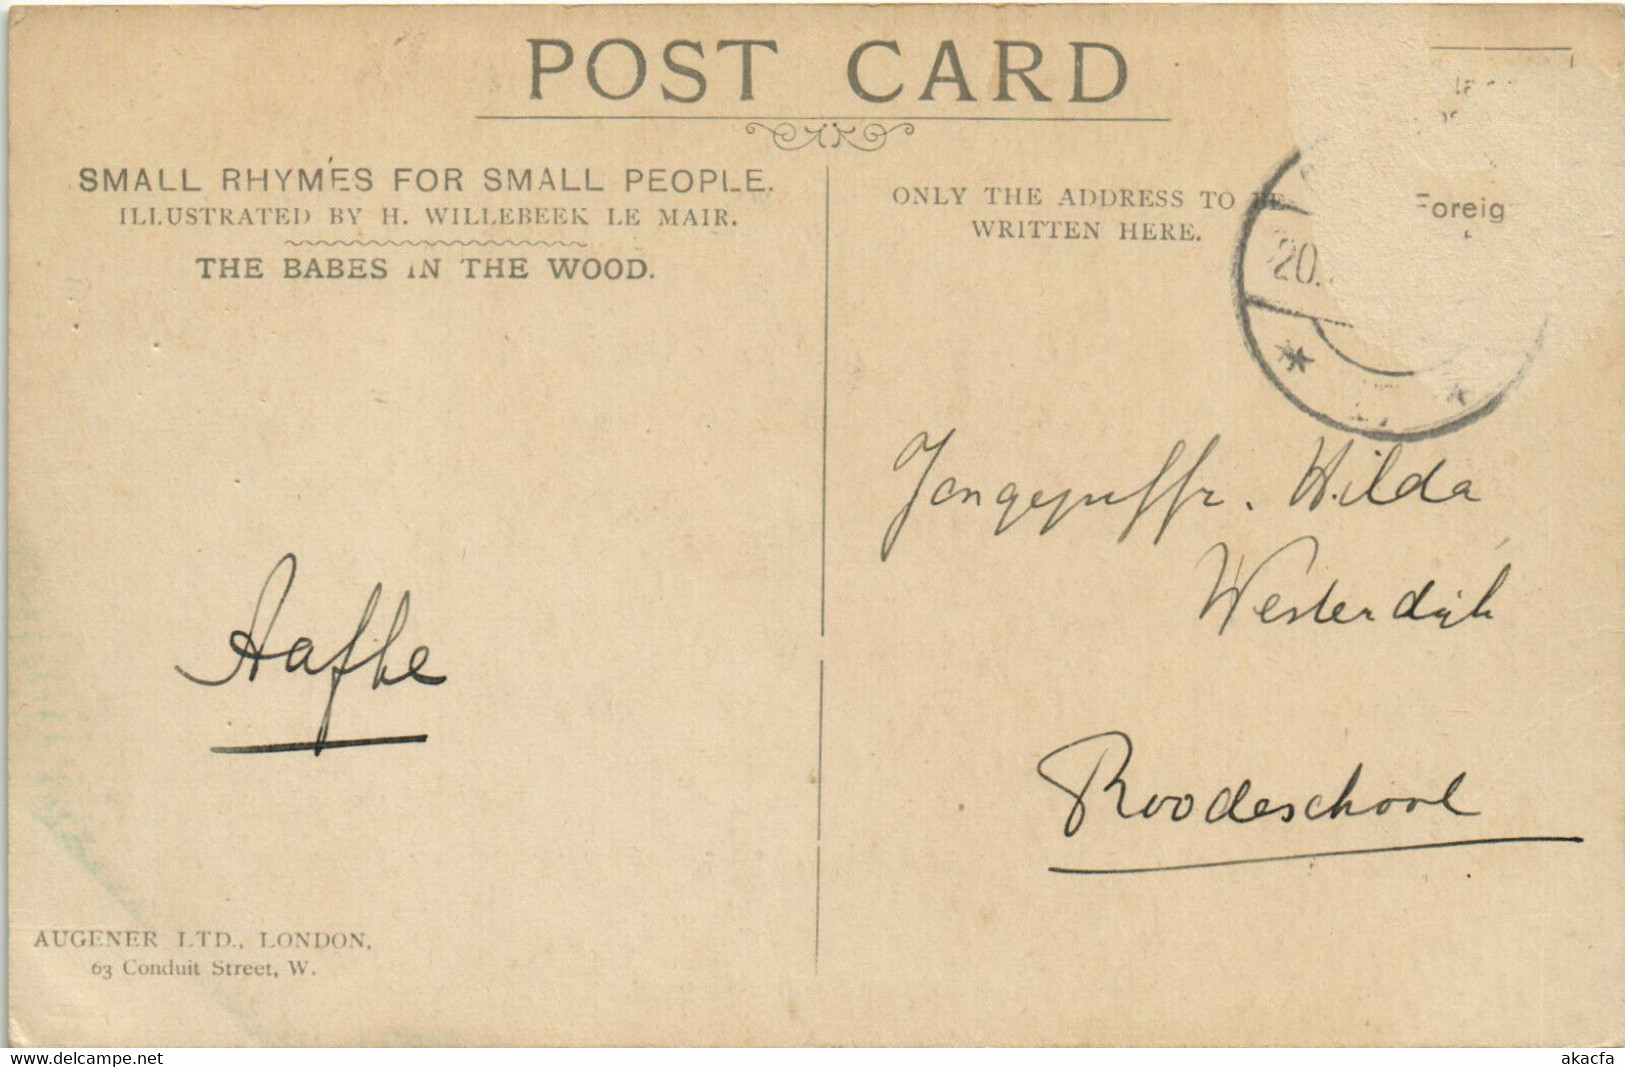 POST CARD
SMALL RHYMES FOR SMALL PEOPLE.
ILLUSTRATED BY H. WILLEBEEK LE MAIR.
THE BABES IN THE WOOD.
ONLY THE ADDRESS TO BE
WRITTEN HERE.
Foreig
20.
Jongejuffr. Hilda
Westerdijk
Roodeschool
Aafke
AUGENER LTD., LONDON,
63 Conduit Street, W.
www.delcampe.net
akacfa